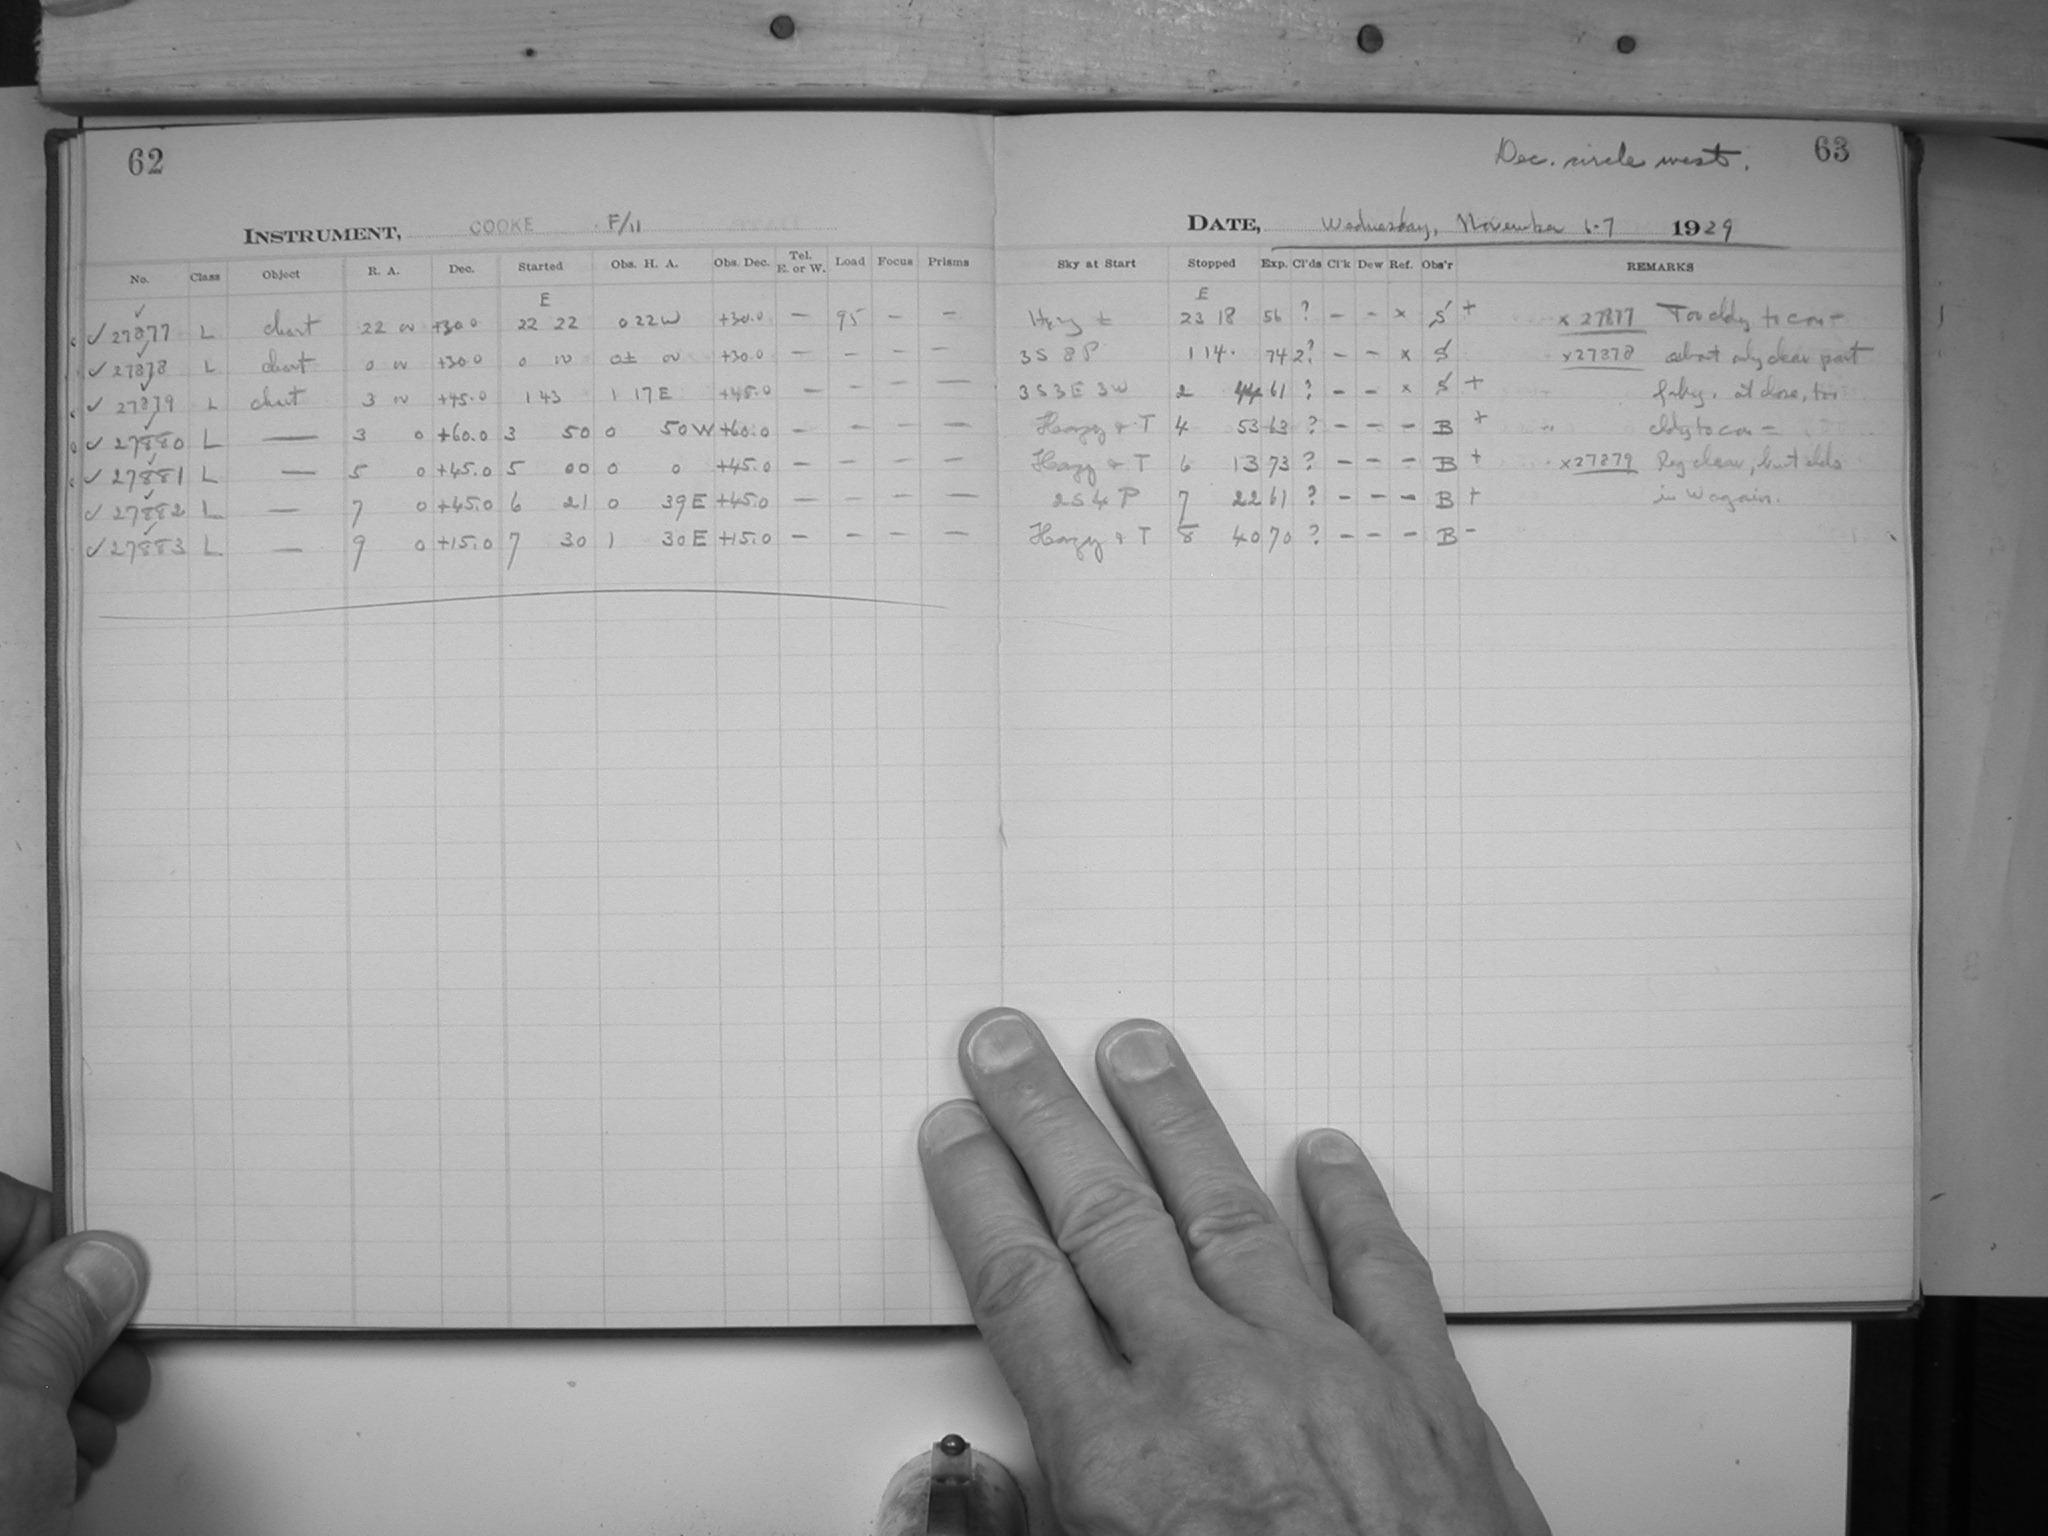 62
INSTRUMENT, COOKE F/11
No. Class Object R. A. Dec. Started Obs. H. A. Obs. Dec. Tel. E. or W. Load Focus Prisms
E
✓ 27877 L chart 22 +30.0 22 22 0 22 W +30.0 — 95 — —
✓ 27878 L chart 0 +30.0 0 0± +30.0 — — — —
✓ 27879 L chart 3 +45.0 1 43 1 17 E +45.0 — — — —
✓ 27880 L — 3 0 +60.0 3 50 0 50 W +60.0 — — — —
✓ 27881 L — 5 0 +45.0 5 00 0 0 +45.0 — — — —
✓ 27882 L — 7 0 +45.0 6 21 0 39 E +45.0 — — — —
✓ 27883 L — 9 0 +15.0 7 30 1 30 E +15.0 — — — —
Dec. circle west. 63
DATE, Wednesday, November 6-7 1929
Sky at Start Stopped Exp. Cl'ds Cl'k Dew Ref. Obs'r REMARKS
E
Hazy 23 18 56 ? — — x S + x 27877 Too cldy to con—
3 S 8 P 1 14 74 2? — — x S x 27878 about only clear part
3 S 3 E 3 W 2 44 61 ? — — x S + of sky. at close, too
Hazy & T 4 53 63 ? — — — B + cldy to con—
Hazy & T 6 13 73 ? — — — B + x 27879 Reg clear, but clds
2 S 4 P 7 22 61 ? — — — B + in W again.
Hazy & T 8 40 70 ? — — — B —